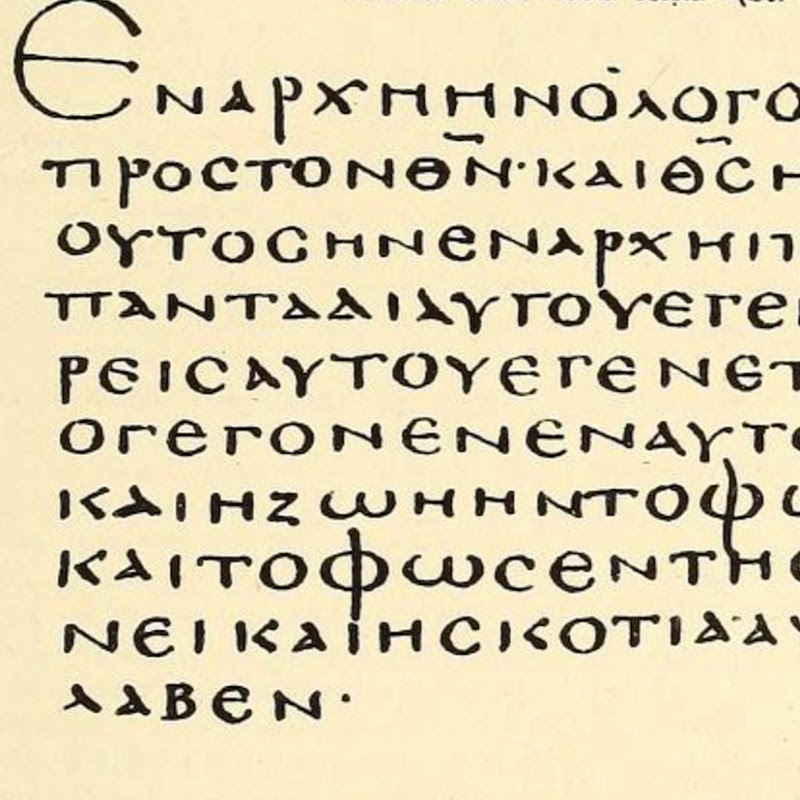 ΕΝΑΡΧΗΗΝΟΛΟΓΟ
ΠΡΟϹΤΟΝΘ̅Ν̅·ΚΑΙΘ̅Ϲ̅Η
ΟΥΤΟϹΗΝΕΝΑΡΧΗΠ
ΠΑΝΤΑΔΙΑΥΤΟΥΕΓΕ
ΡΕΙϹΑΥΤΟΥΕΓΕΝΕΤ
ΟΓΕΓΟΝΕΝΕΝΑΥΤΟ
ΚΑΙΗΖΩΗΗΝΤΟΦ
ΚΑΙΤΟΦΩϹΕΝΤΗ
ΝΕΙΚΑΙΗϹΚΟΤΙΑΑΥ
ΛΑΒΕΝ·